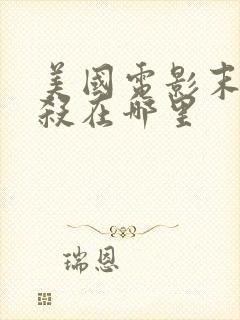 美國電影末
殺在哪里
瑞恩